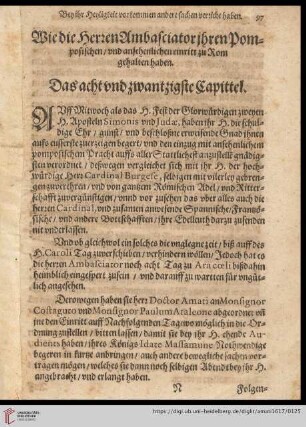 Bey ihr Heyligkeit vorkommen andere sachen verricht haben. 97
Wie die Herren Ambasciator ihren Pom-
posischen / vnd ansehenlichen einritt zu Rom
gehalten haben.
Das acht vnd zwantzigste Capittel.
AUff Mitwoch als das H. Fest der Glorwürdigen zweyen
H. Aposteln Simonis vnd Judæ, haben ihr H. die schul-
dige Ehr / gunst / vnd beschloßne erweisende Gnad ihnen
auffs eusserste zuerzeigen begert / vnd den einzug mit ansehenlichem
pomposischen Pracht auffs aller Stattlichest anzustellen gnädig-
lich verordnet / deßwegen vergleichet sich mit ihr H. der hoch-
würdige Herr Cardinal Burgese, selbigen mit vilerley gebren-
gen zuverehren / vnd von gantzem Römischen Adel / vnd Ritter-
schafft zuvergünstigen / vnnd vor zuschen das vber alles auch die
herren Cardinal, vnd zusamen anwesende Spannische / Frantzö-
sische / vnd andere Bottschafften / ihre Edelleuth darzu zusenden
nit vnderlassen.
Vnd ob gleichwol ein solches die vnglegne zeit / biß auff des
H. Caroli Tag zuverschieben / verhindern wöllen / Jedoch hat es
die herren Ambasciator noch acht Tag zu Aracœli biß dahin
heimblich eingespert zusein / vnd darauff zu wartten für vngüt-
lich angesehen.
Derowegen haben sie herrn Doctor Amati an Monsignor
Costaguto vnd Monsignor Paulum Araleone abgeordnet vnd
jne den Einritt auff Nachfolgenden Tag / wo möglich in die Or-
dnung zustellen / bitten lassen / damit sie bey ihr H. ehende Au-
dienz haben / ihres Königs Idate Massamune Nothwendige
begeren in kürtze anbringen / auch andere bewegliche sachen vor-
tragen mögen / welches sie dann noch selbigen Abendts bey ihr H.
angebracht / vnd erlanget haben.
N Folgen-
https://digi.ub.uni-heidelberg.de/diglit/amati1617/0125
© Universitätsbibliothek Heidelberg